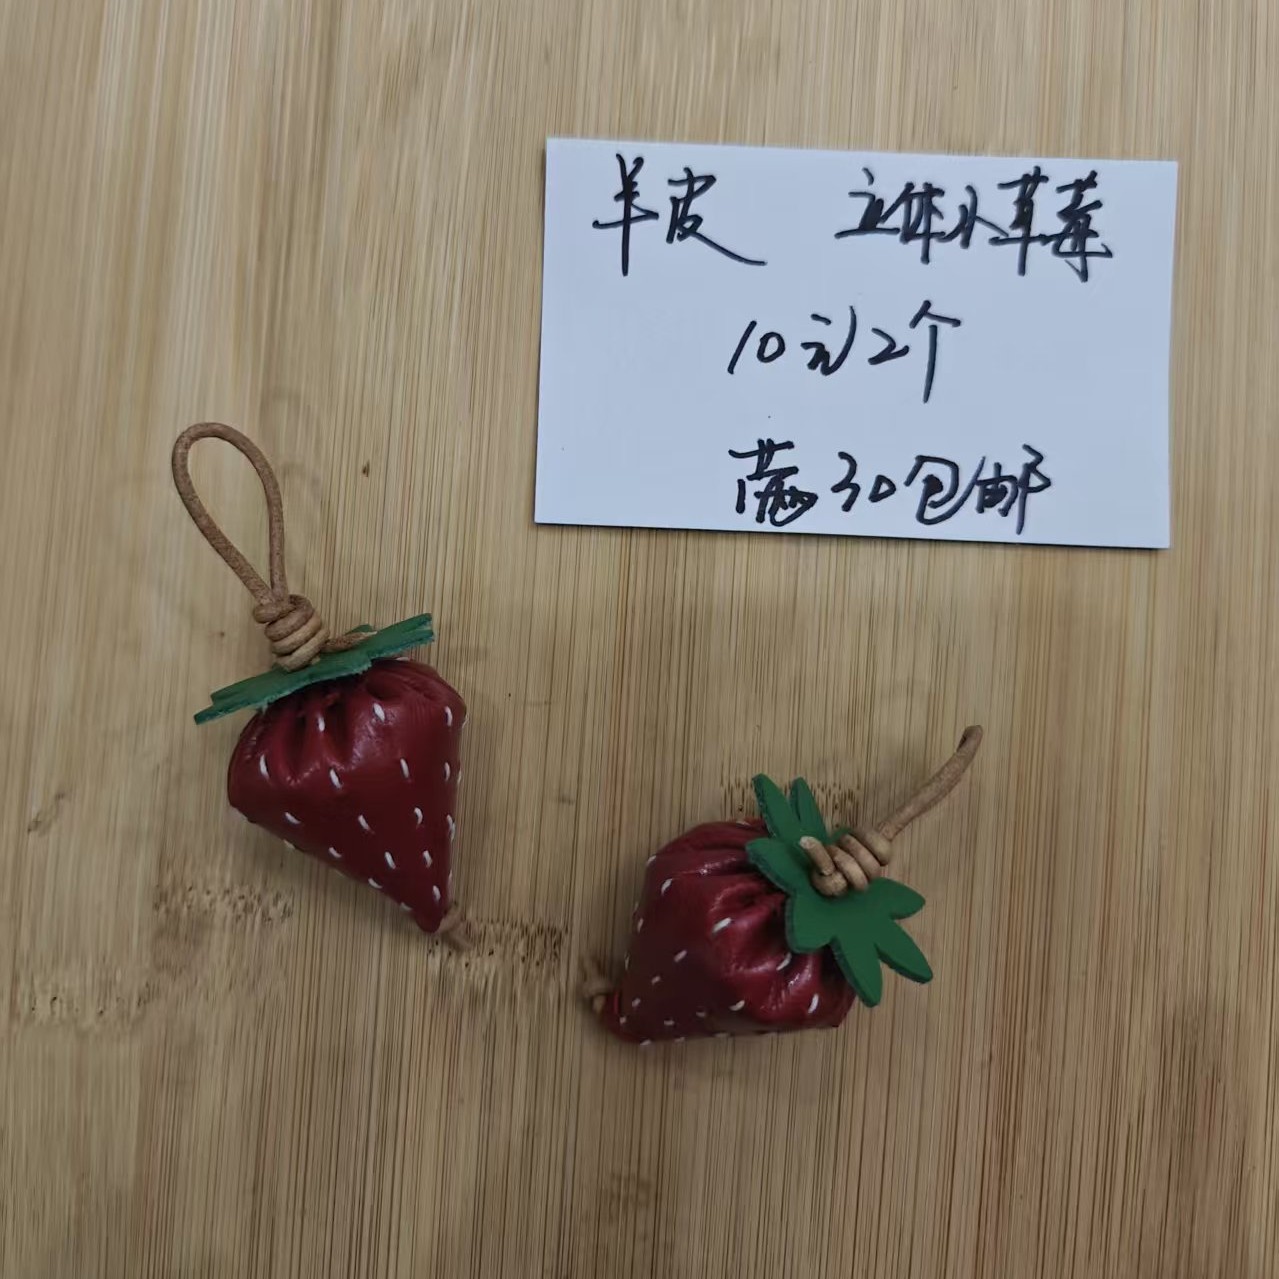 羊皮 立体小草莓
10元2个
满30包邮